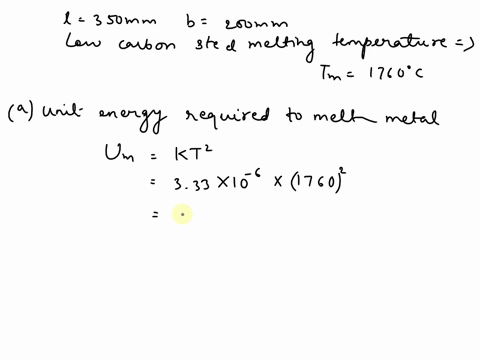 l = 350mm b = 200mm
Low carbon steel melting temperature =>
Tm = 1760°C
(a) Unit energy required to melt metal
Um = KT²
= 3.33 × 10⁻⁶ × (1760)²
=